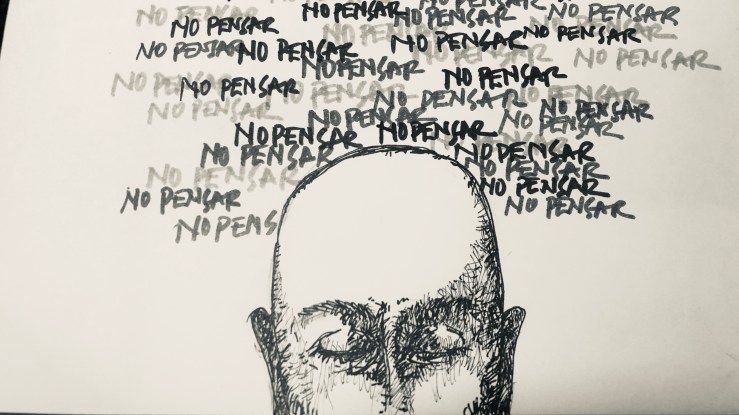 NO PENSAR NO PENSAR NO PENSAR NO PENSAR
NO PENSAR NO PENSAR
NO PENSAR NO PENSAR NO PENSAR NO PENSAR
NO PENSAR NO PENSAR NO PENSAR
NO PENSAR NO PENSAR
NO PENSAR NO PENSAR
NO PENSAR NO PENSAR NO PENSAR
NO PENSAR NO PENSAR NO PENSAR
NO PENSAR NO PENSAR NO PENSAR
NO PENSAR NO PENSAR
NO PENSAR NO PENSAR
NO PENSAR NO PENSAR
NO PENSAR
NO PEMS